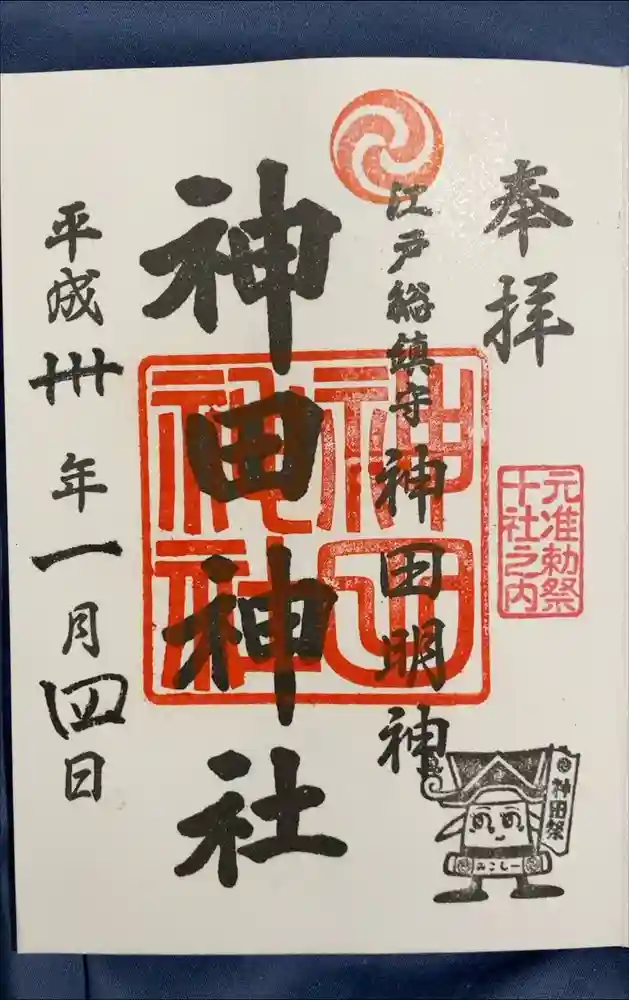 奉拝
元准勅祭
十社之内
江戸総鎮守神田明神
神田神社
神田
神社
平成卅年一月四日
神田祭
みこしー